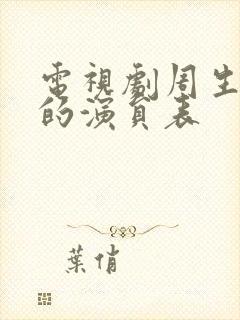 電視劇周生
的演員表
葉俏